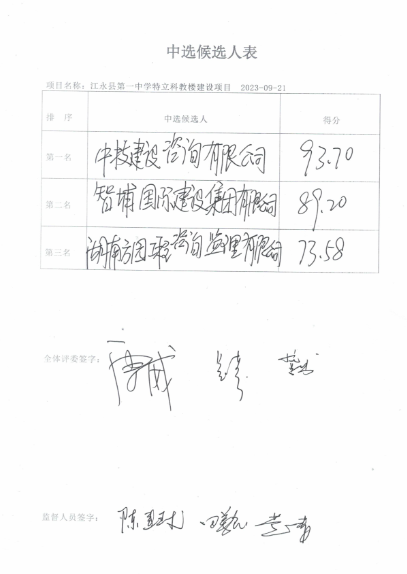 中选候选人表
项目名称：江永县第一中学特立科教楼建设项目 2023-09-21
排 序 中选候选人 得分
第一名 中技建设咨询有限公司 93.70
第二名 智埔国际建设集团有限公司 89.20
第三名 湖南方圆工程咨询监理有限公司 73.58
全体评委签字：
监督人员签字：